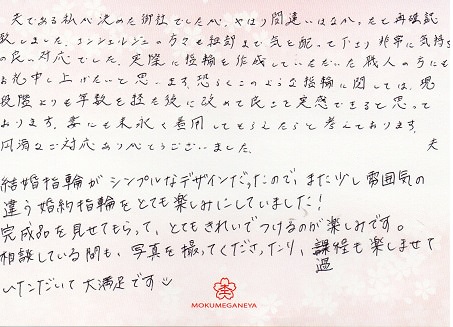 夫である私が決めた御社でしたが、やはり間違いはなかったと再確認
致しました。コンシェルジュの方々も細部まで気を配って下さり非常に気持ち
の良い対応でした。実際に指輪を作成していただいた職人の方にも
お礼申し上げたいと思います。恐らくこのような指輪に関しては、現
段階よりも年数を経た後に改めて良さを実感できると思って
おります。妻にも末永く着用してもらえたらと考えております。
円滑なご対応ありがとうございました。 夫
結婚指輪がシンプルなデザインだったので、また少し雰囲気の
違う婚約指輪をとても楽しみにしていました!
完成品を見せてもらって、とてもきれいでつけるのが楽しみです。
相談している間も、写真を撮ってくださったり、課程も楽しませて
過
いただいて大満足です
MOKUMEGANEYA